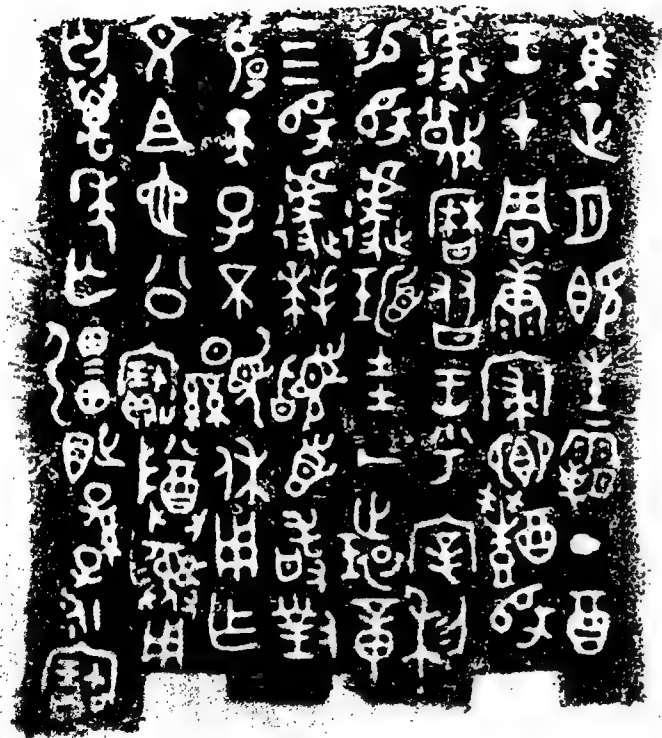 隹正月既生霸丁酉
王才周康寢鄉醴師
遽蔑曆𦣻王乎宰利
易師遽瑂圭一環章
四師遽拜𩒨首敢對
揚天子不顯休用乍
文且也公寶尊彝用
匄萬年亡彊百世孫子永寶